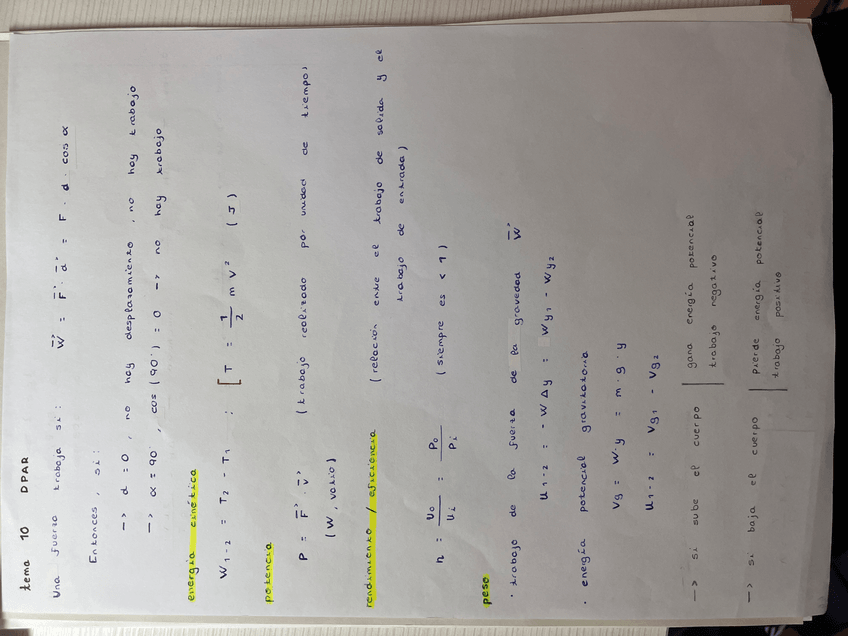 tema 10 DPAR
Una fuerza trabaja si: W⃗ = F⃗ · d⃗ = F · d · cos α
Entonces, si:
—> d = 0, no hay desplazamiento, no hay trabajo
—> α = 90°, cos(90°) = 0 —> no hay trabajo
energía cinética
W₁₋₂ = T₂ - T₁ : [T = 1/2 m v² (J)
potencia
P = F⃗ · v⃗ (trabajo realizado por unidad de tiempo)
(W, vatio)
rendimiento / eficiencia (relación entre el trabajo de salida y el
trabajo de entrada)
n = U₀/Uᵢ = P₀/Pᵢ (siempre es < 1)
peso
· trabajo de la fuerza de la gravedad W⃗
U₁₋₂ = - W Δy = Wy₁ - Wy₂
· energía potencial gravitatoria
Vg = W·y = m · g · y
U₁₋₂ = Vg₁ - Vg₂
—> si sube el cuerpo | gana energía potencial
trabajo negativo
—> si baja el cuerpo | pierde energía potencial
trabajo positivo